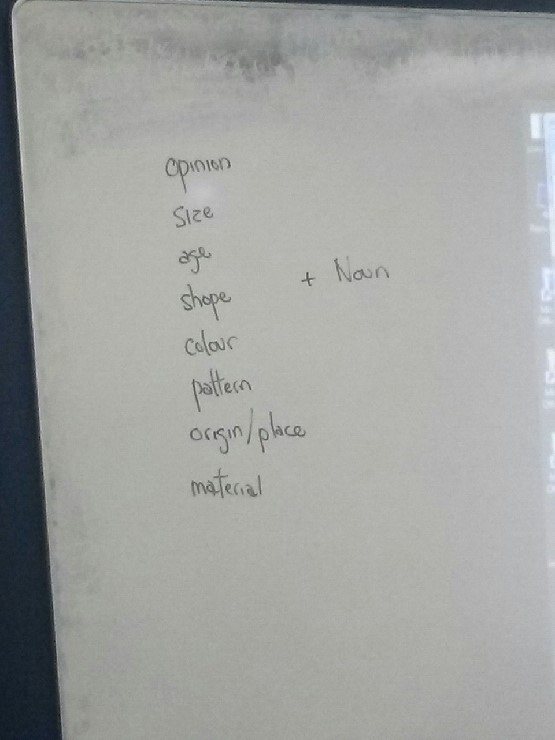 opinion
size
age
shape
+ Noun
colour
pattern
origin/place
material